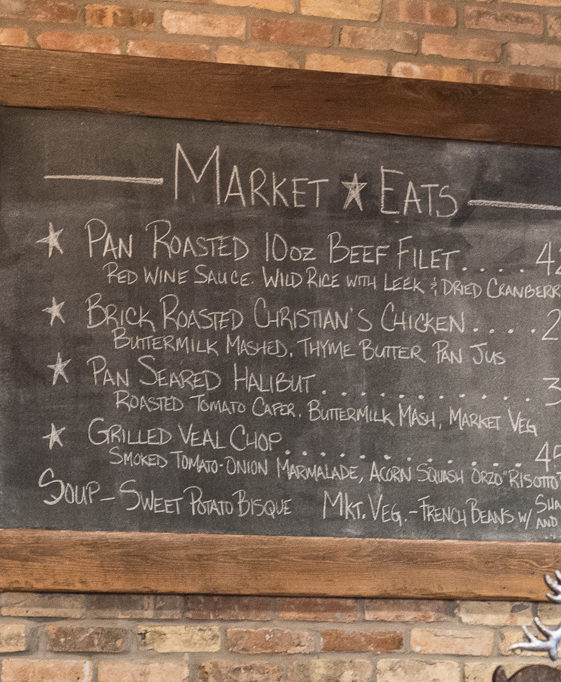 MARKET ★ EATS
★ PAN ROASTED 10OZ BEEF FILET.... 42
RED WINE SAUCE. WILD RICE WITH LEEK & DRIED CRANBERR
★ BRICK ROASTED CHRISTIAN'S CHICKEN.... 2
BUTTERMILK MASHED, THYME BUTTER PAN JUS
★ PAN SEARED HALIBUT........... 3
ROASTED TOMATO CAPER, BUTTERMILK MASH, MARKET VEG
★ GRILLED VEAL CHOP........... 45
SMOKED TOMATO-ONION MARMALADE, ACORN SQUASH ORZO "RISOTTO"
SOUP - SWEET POTATO BISQUE MKT. VEG. - FRENCH BEANS W/ SHA
AND